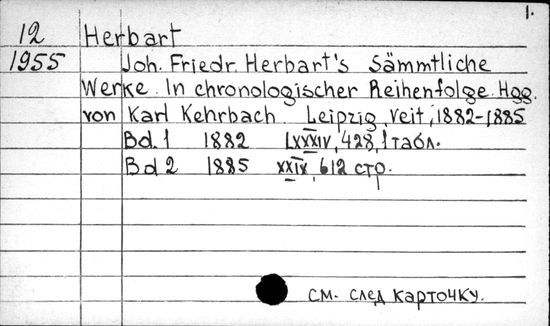 1.
12 Herbart
1955 Joh. Friedr. Herbart's Sämmtliche
Werke. In chronologischer Reihenfolge. Hgg.
von Karl Kehrbach. Leipzig, Veit, 1882-1885
Bd. 1 1882 LXXXIV, 428, 1 табл.
Bd 2 1885 XXIX, 612 стр.
см. след карточку.